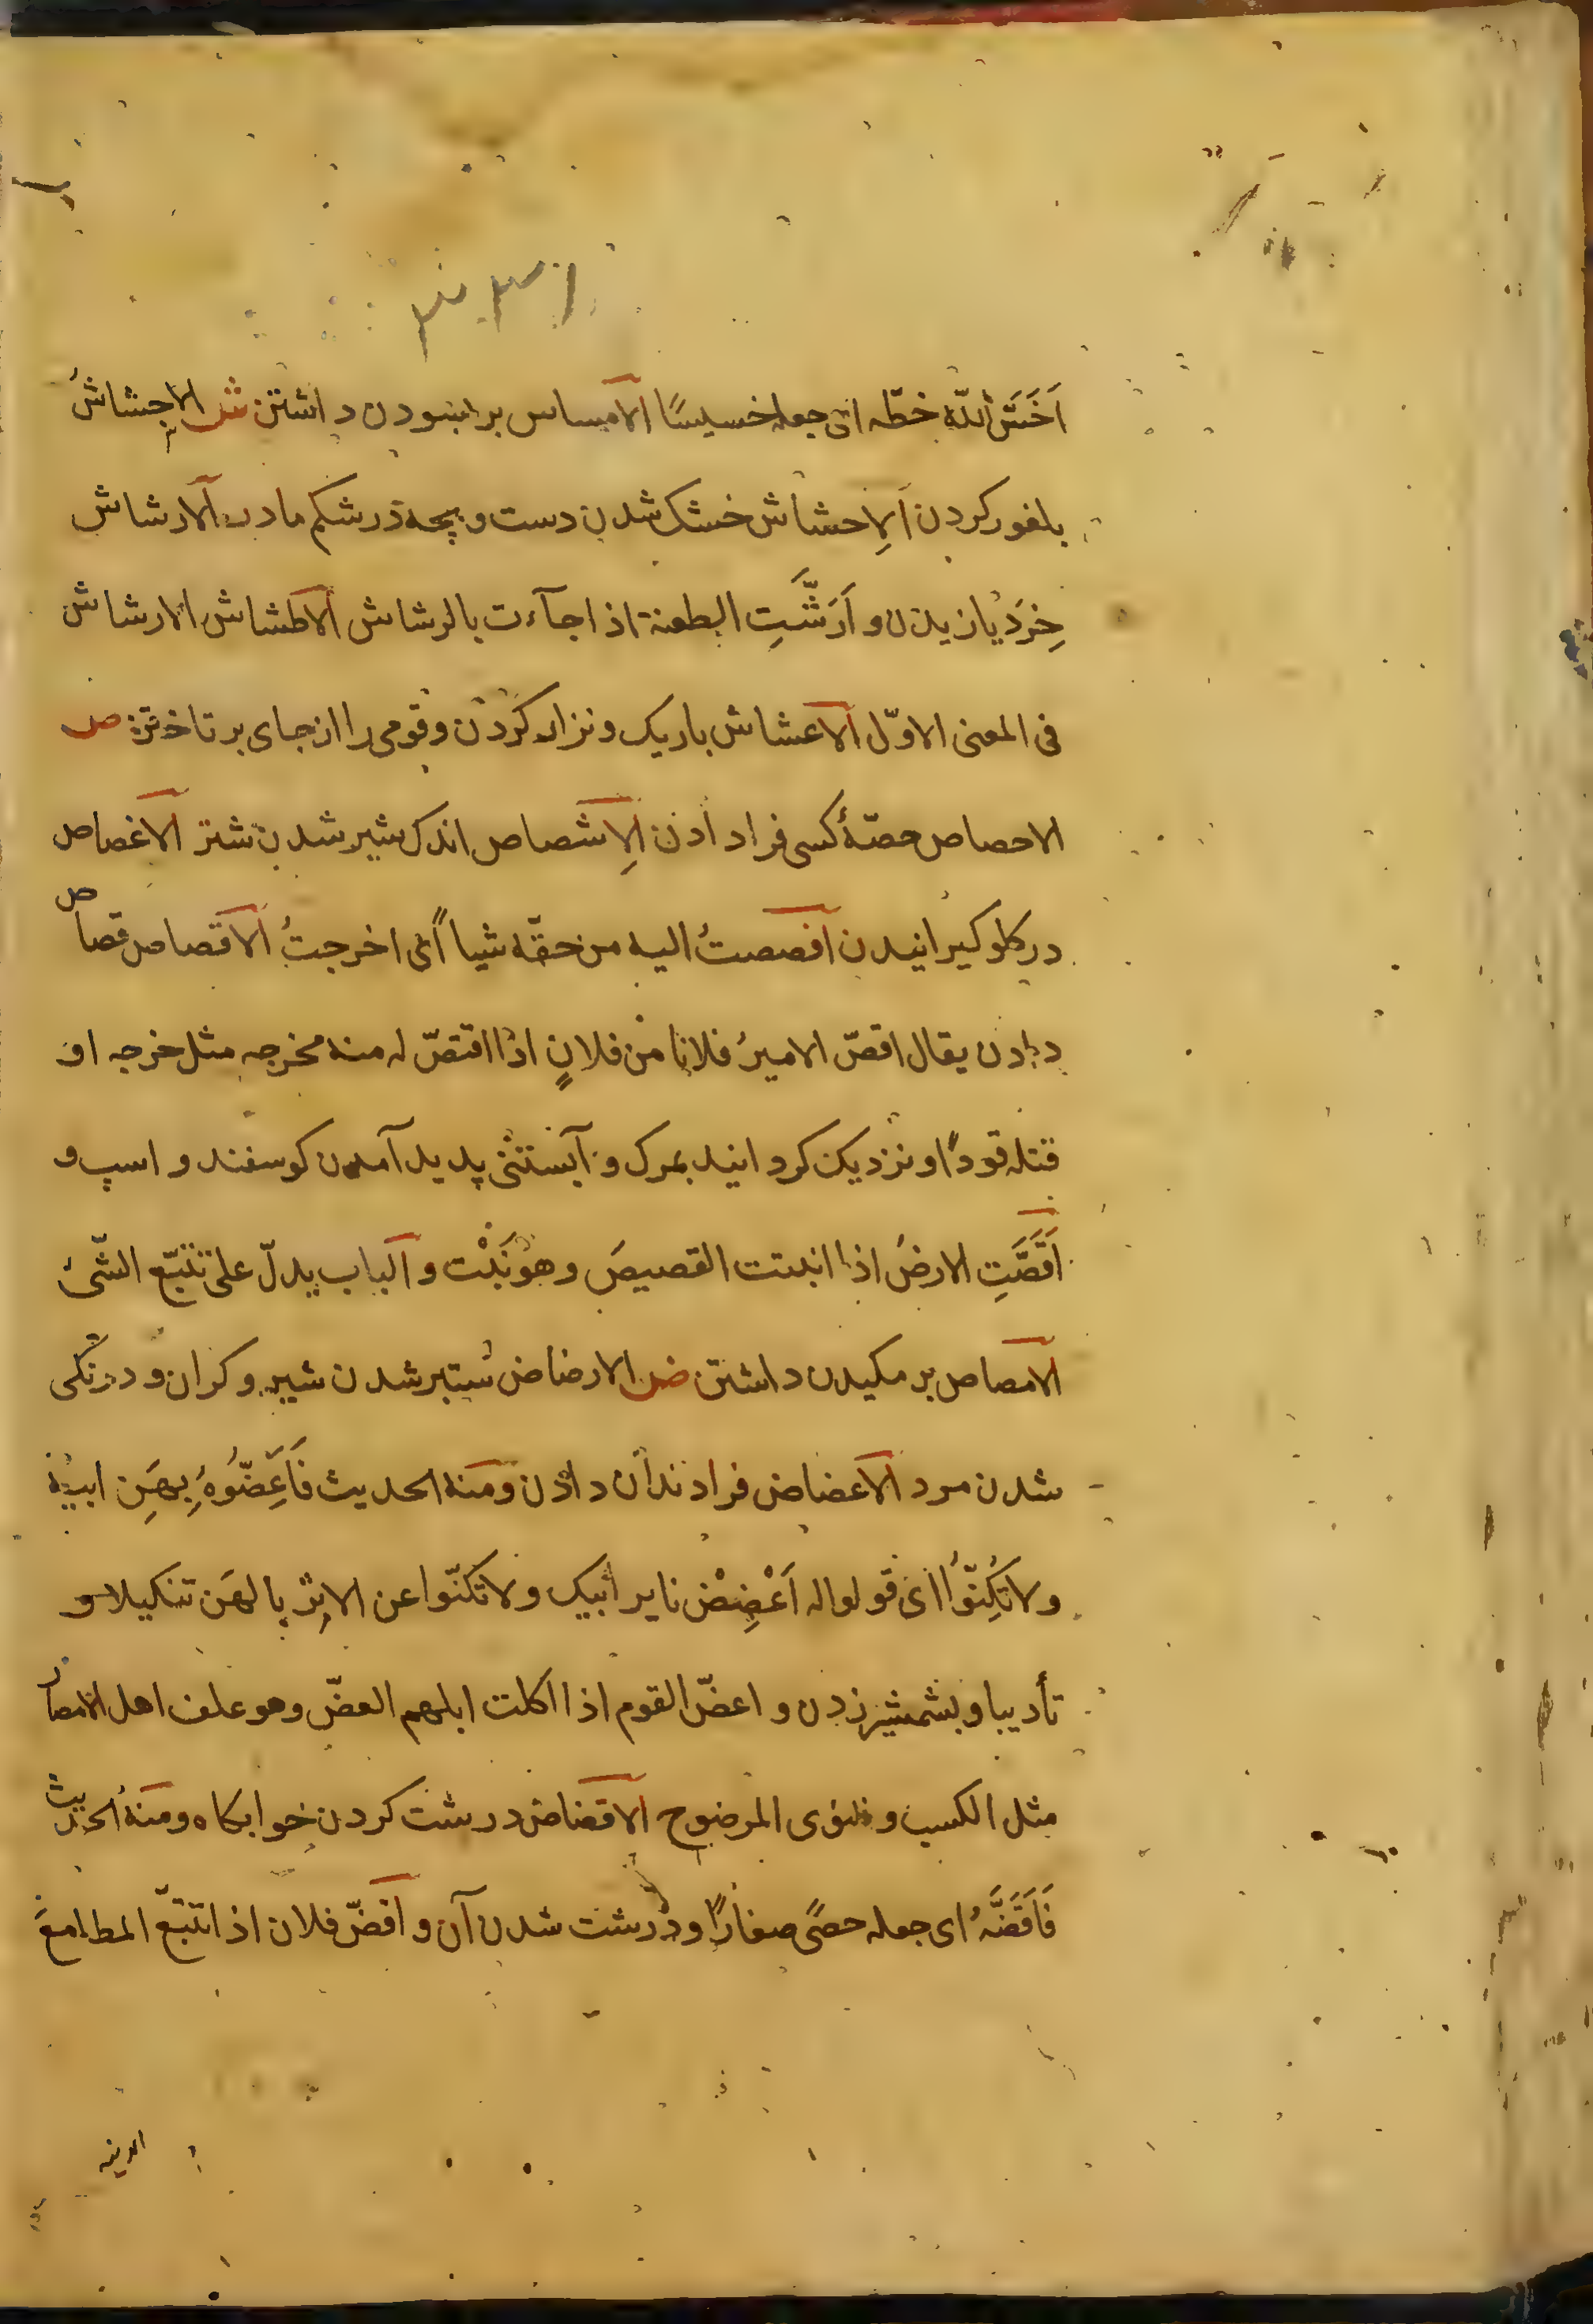 اَخَسَّ اللّٰه خطّه ای جعله خسیسًا الامساس بر ابسودن داشتن ش الاجشاش
بلغور کردن اَلِاحشاش خشک شدن دست و بچه در شکم مادر الارشاش
خِرَد یازیدن و اَرَشَّتِ الطعنة اذا جآءت بالرشاش الاطشاش الارشاش
فی المعنی الاوّل الاعشاش باریک و نزار کردن و قومی را از جای بر تاختن ص
الاحصاص حصّهٔ کسی فرا دادن اَلِاشصاص اندک شیر شدن شتر الاغصاص
در کلو کیرانیدن افصصتُ الیه من حقّه شیاً ای اخرجتُ الاقصاص قصاص
دادن یقال اقصّ الامیرُ فلانا من فلانٍ اذا اقتصّ له منه مخرجه مثل خرجه او
قتله قودًا و نزدیک کردانید بمرک و آبستنی پدید آمدن کوسفند و اسپ و
اَقَصَّتِ الارضُ اذا انبتت القصیصَ و هو نَبْت و الباب یدلّ علی تتبّع الشّیٔ
الامصاص بر مکیدن داشتن ض الارضاض ستبر شدن شیر و کران و درنکی
شدن مرد الاعضاض فرا دندان دادن و منه الحدیث فَاَعِضُّوهُ بِهَنِ ابیه
ولا تَکْنُوا ای قولوا له اَعْضِضْ بایر ابیک ولا تکنّوا عن الایر بالهَن تنکیلا و
تأدیبا و بشمشیر زدن و اعضّ القوم اذا اکلت ابلهم العضّ و هو علف اهل الامصار
مثل الکسب و النوی المرضوح الاقضاض درشت کردن خوابکاه و منه الحدیث
فَاَقَضَّهُ ای جعله حصًی صغارًا و درشت شدن آن و اقضّ فلان اذا تتبّع المطامعَ